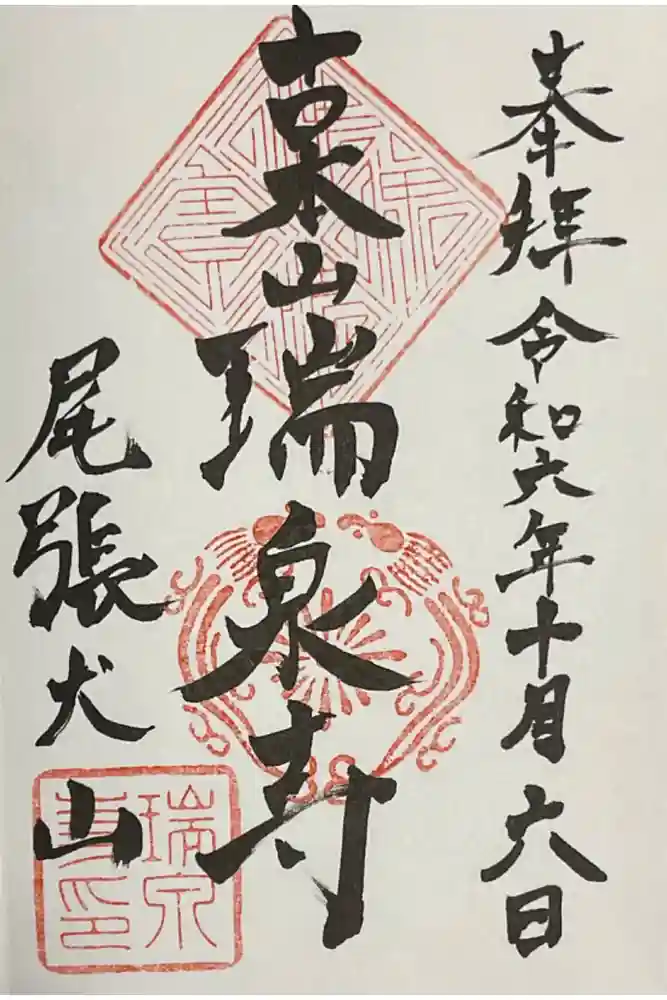 奉拝 令和六年十月六日
山瑞泉寺
尾張犬山
瑞泉
寺印